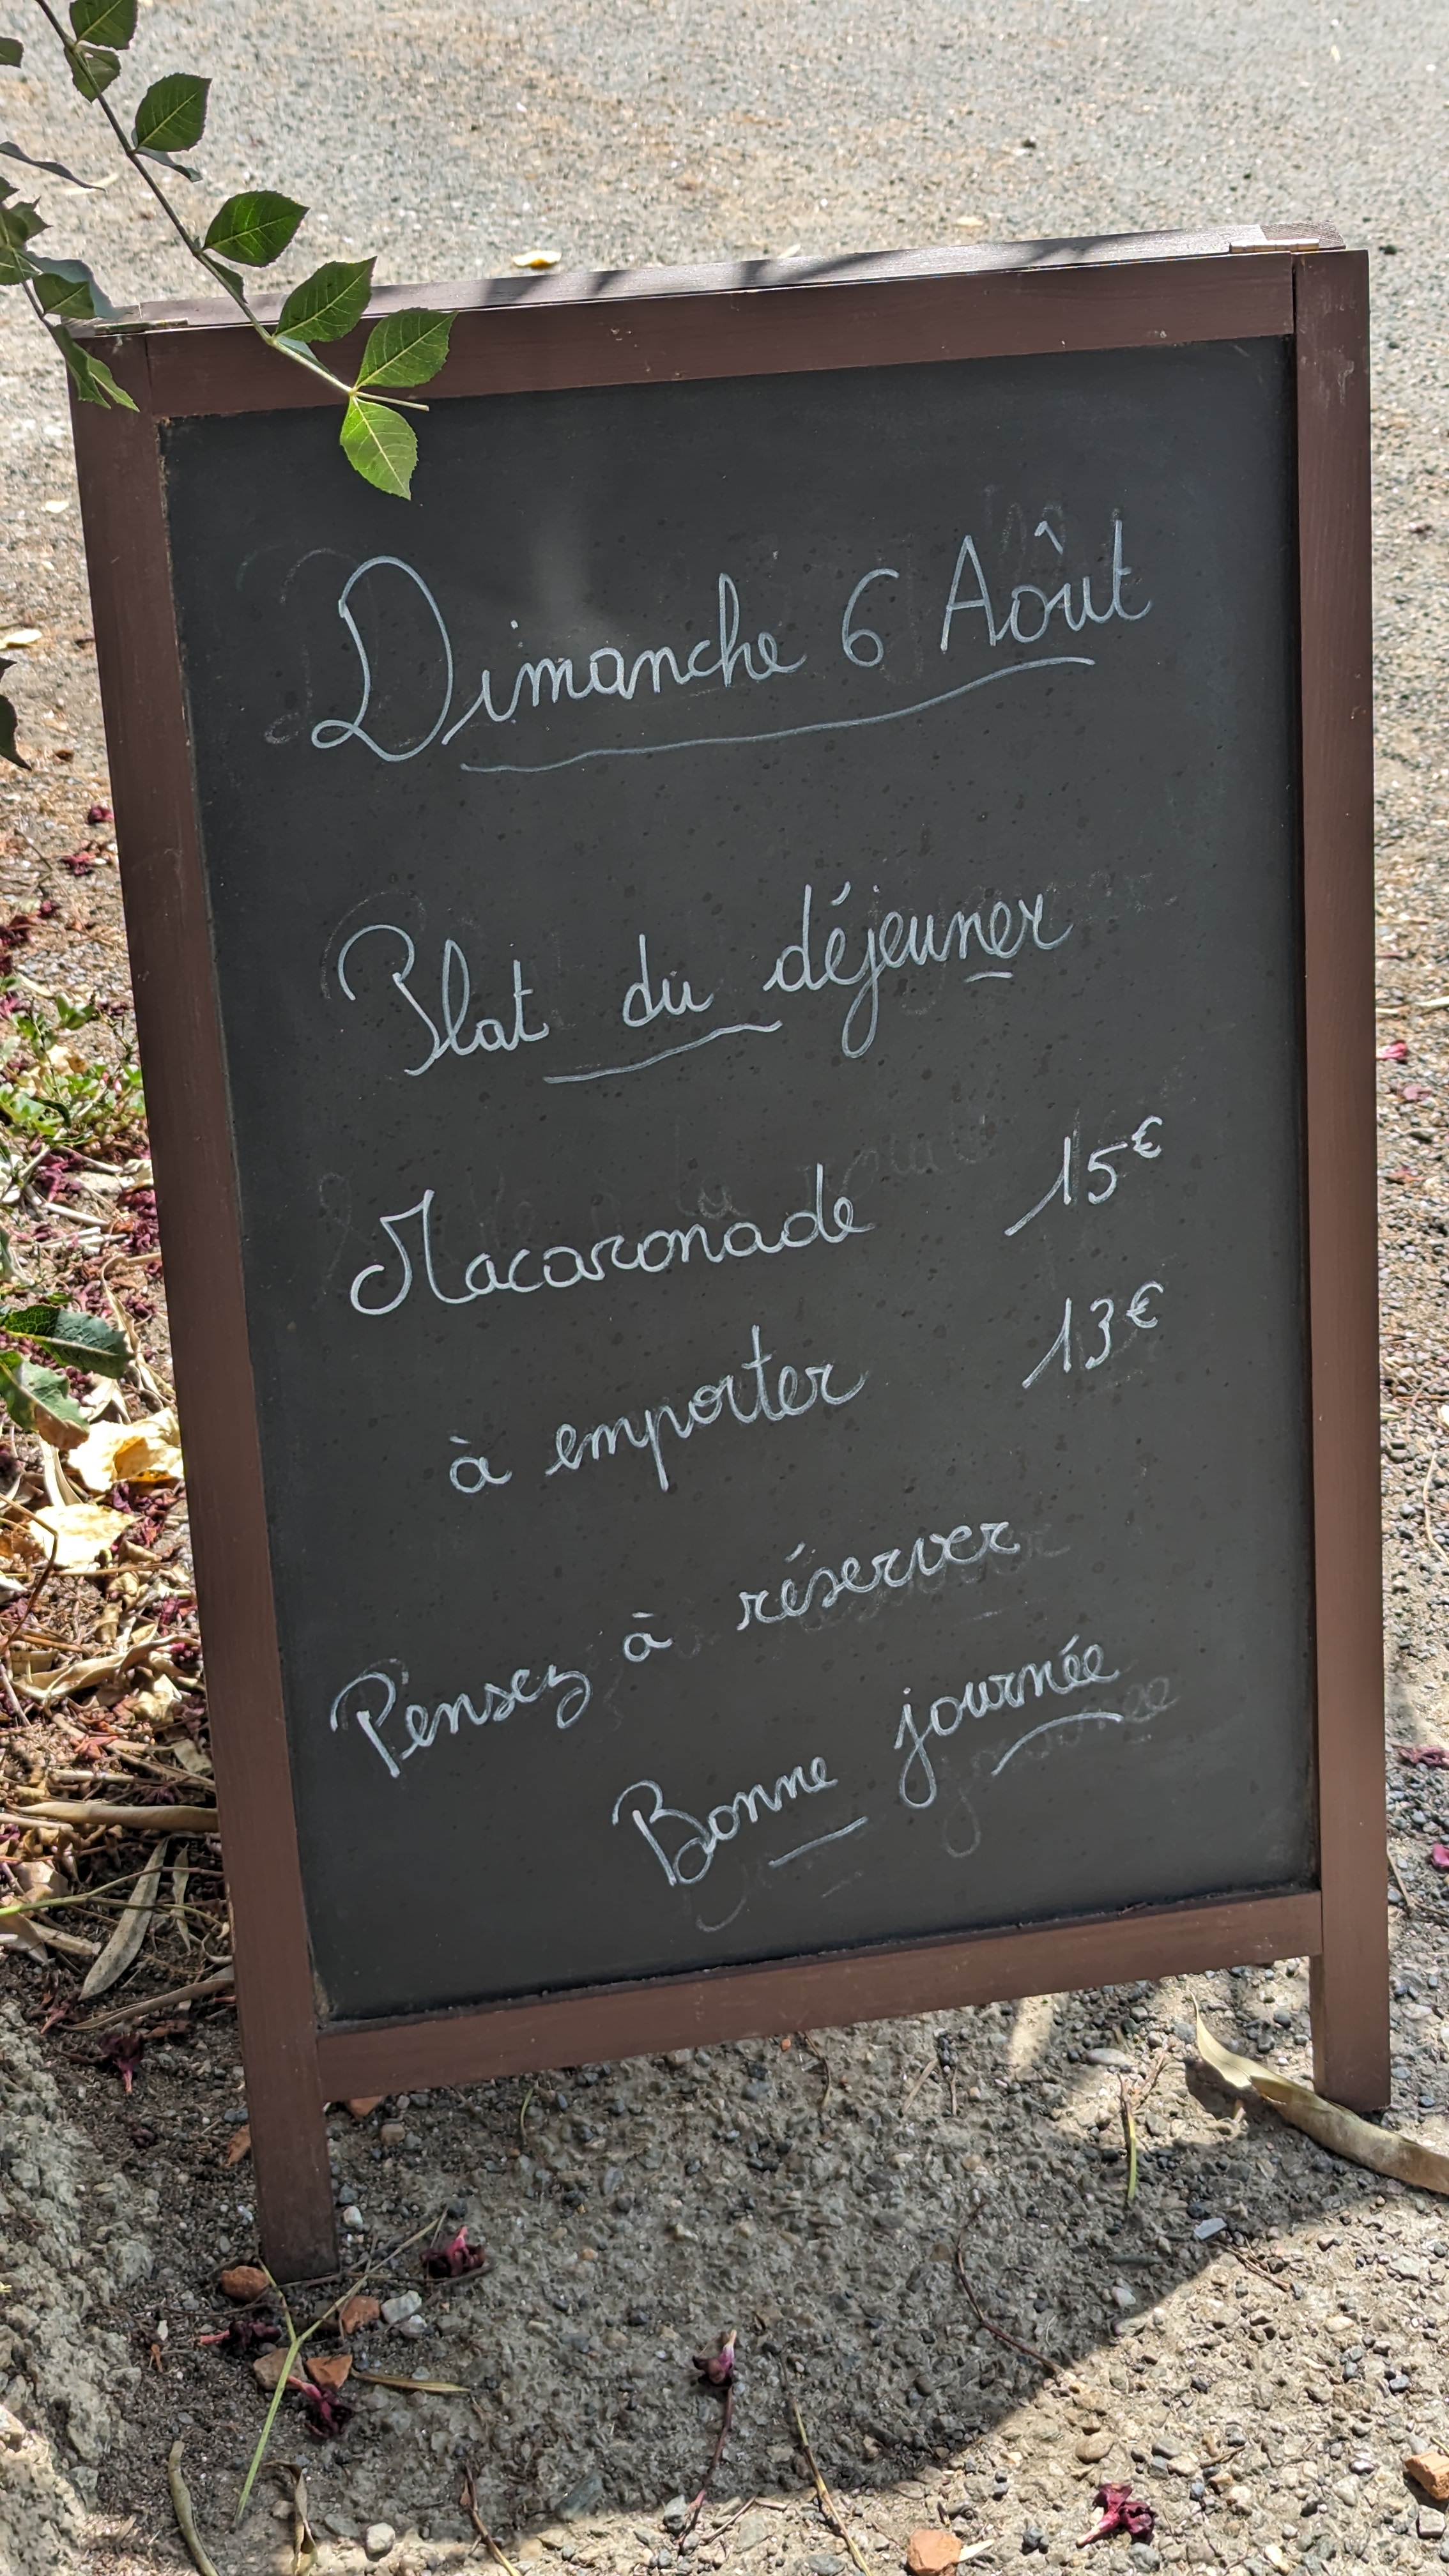 Dimanche 6 Aôut
Plat du déjeuner
Macaronade 15€
à emporter 13€
Pensez à réserver
Bonne journée